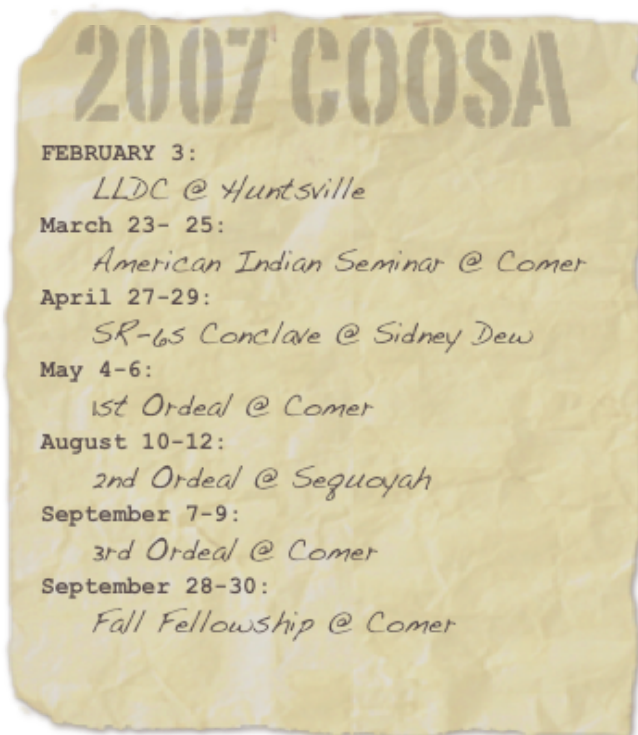 2007 COOSA
FEBRUARY 3:
LLDC @ Huntsville
March 23- 25:
American Indian Seminar @ Comer
April 27-29:
SR-6S Conclave @ Sidney Dew
May 4-6:
1st Ordeal @ Comer
August 10-12:
2nd Ordeal @ Sequoyah
September 7-9:
3rd Ordeal @ Comer
September 28-30:
Fall Fellowship @ Comer